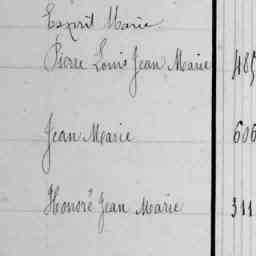 Esprit Marie
Pierre Louis Jean Marie 485
Jean Marie 606
Honoré Jean Marie 311